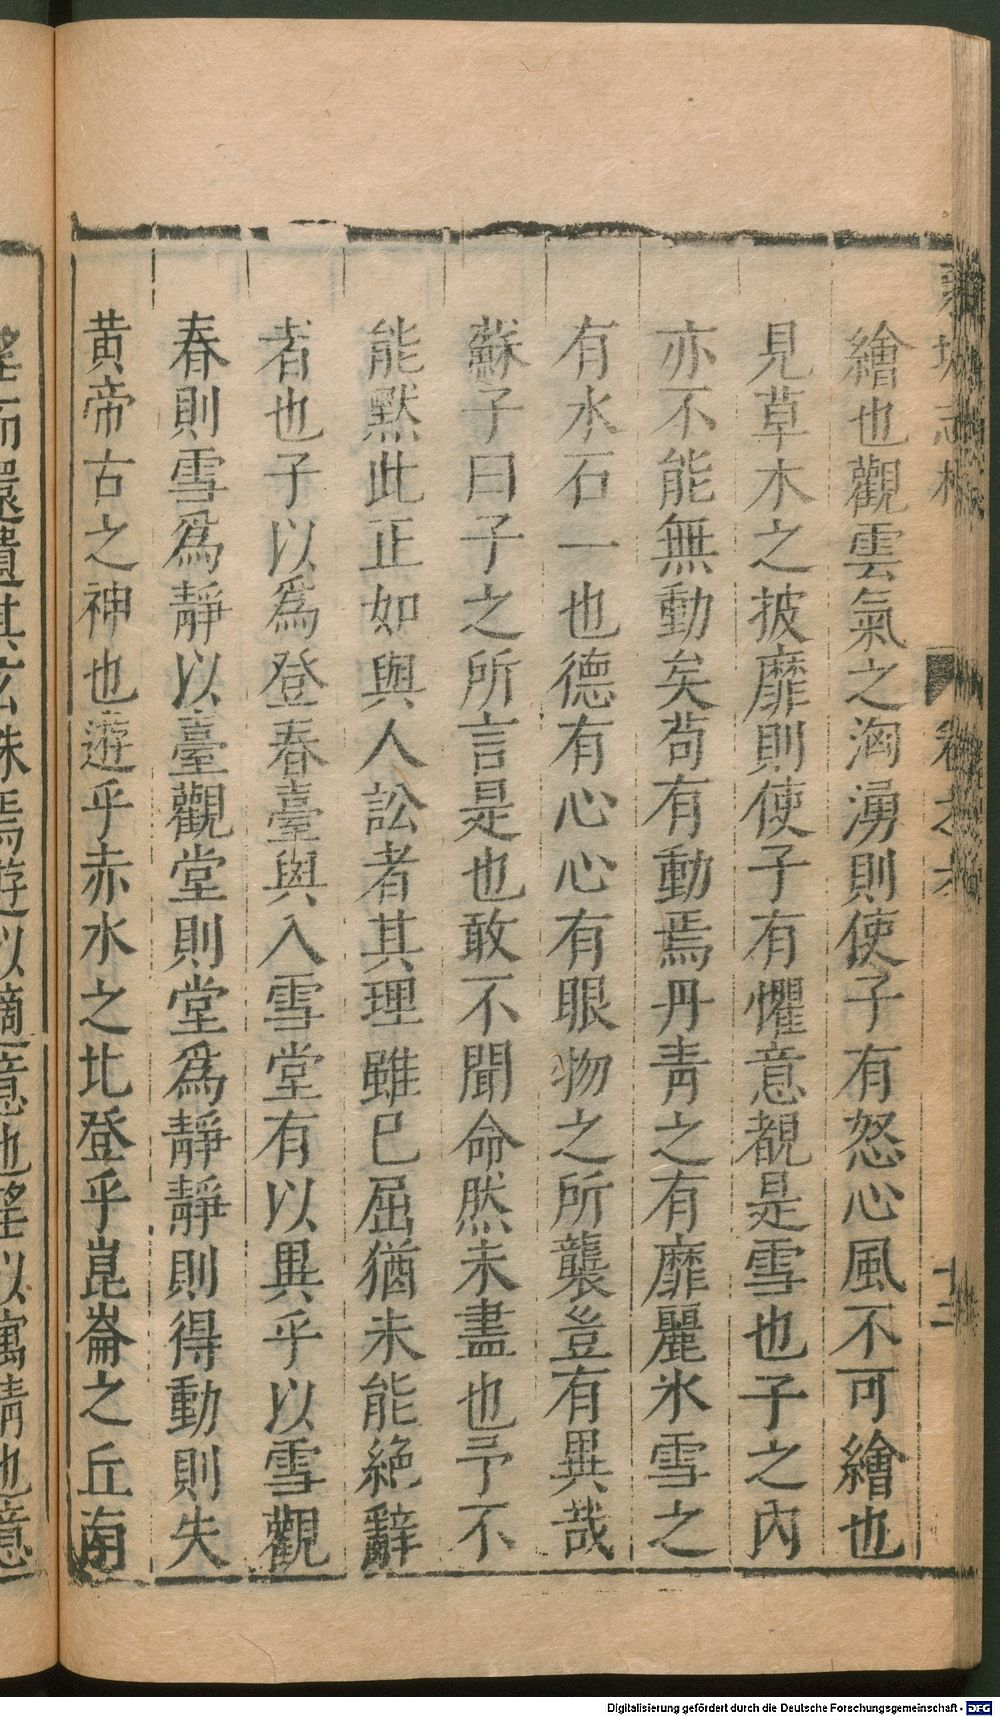 東坡志林
卷之
十二
繪也觀雲氣之洶湧則使子有怒心風不可繪也
見草木之披靡則使子有懼意覩是雪也子之內
亦不能無動矣苟有動焉丹靑之有靡麗氷雪之
有水石一也德有心心有眼物之所襲豈有異哉
蘇子曰子之所言是也敢不聞命然未盡也予不
能黙此正如與人訟者其理雖已屈猶未能絶辭
者也子以爲登春臺與入雪堂有以異乎以雪觀
春則雪爲靜以臺觀堂則堂爲靜靜則得動則失
黄帝古之神也遊乎赤水之北登乎崑崙之丘南
望而還遺其玄珠焉遊以適意也望以寓情也意
Digitalisierung gefördert durch die Deutsche Forschungsgemeinschaft - DFG